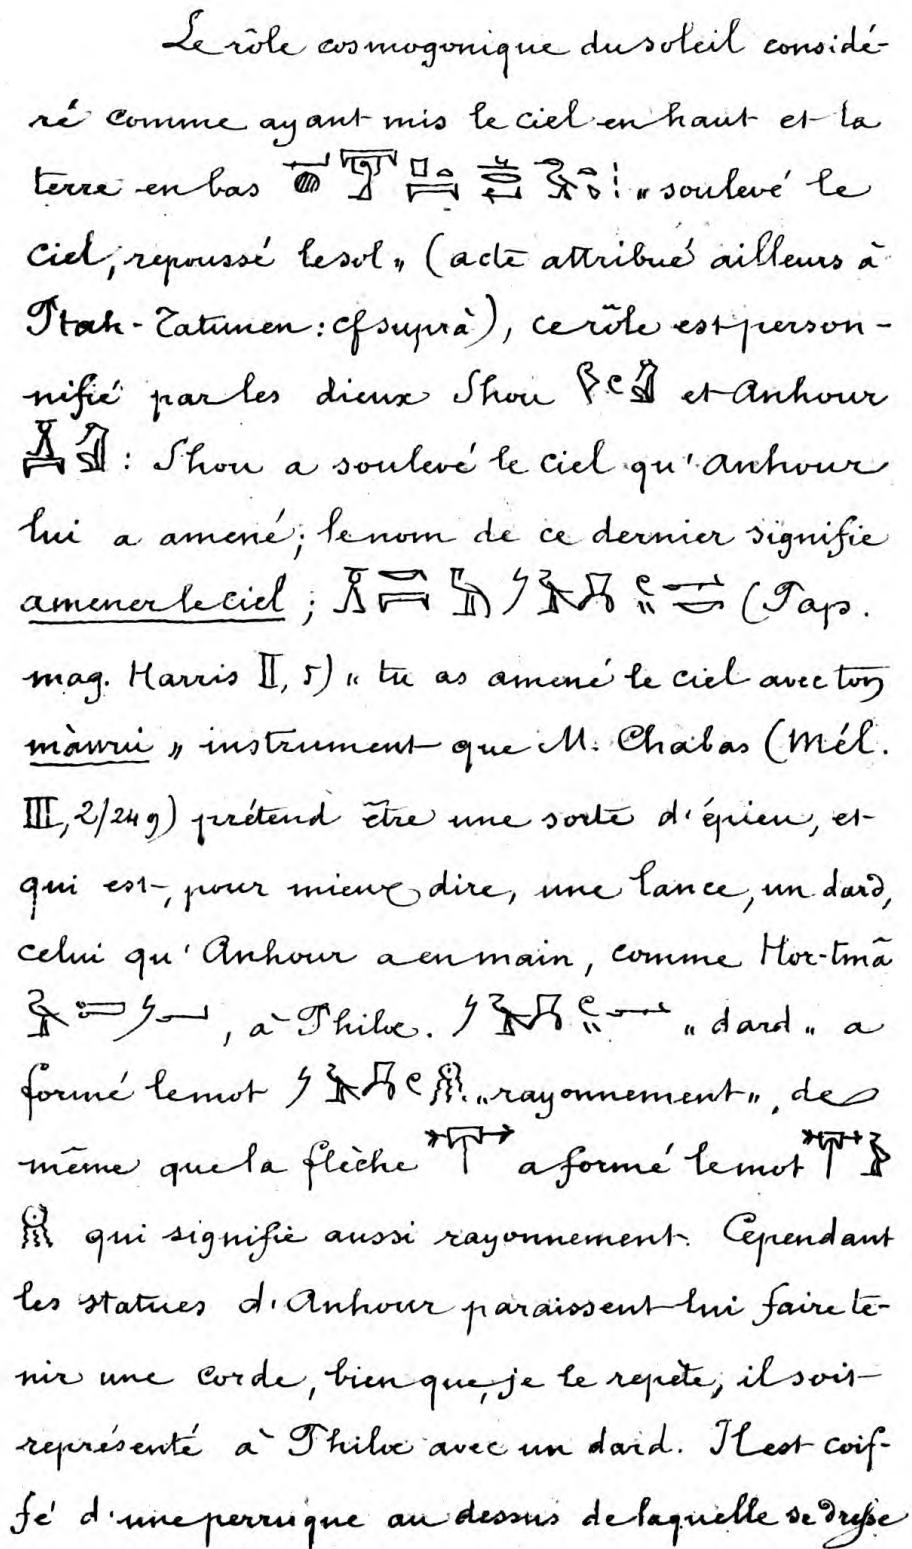 Le rôle cosmogonique du soleil considé-
ré comme ayant mis le ciel en haut et la
terre en bas „ soulevé le
ciel, repoussé le sol „ (acte attribué ailleurs à
Ptah-Tatunen : cf suprà), ce rôle est person-
nifié par les dieux Shou et Anhour
: Shou a soulevé le ciel qu'Anhour
lui a amené ; le nom de ce dernier signifie
amener le ciel ; (Pap.
mag. Harris II, 5) „ tu as amené le ciel avec ton
màurui „ instrument que M. Chabas (Mél.
III, 2/249) prétend être une sorte d'épieu, et
qui est, pour mieux dire, une lance, un dard,
celui qu'Anhour a en main, comme Hor-tmā
, à Philœ. „ dard „ a
formé le mot „ rayonnement „, de
même que la flèche a formé le mot
qui signifie aussi rayonnement. Cependant
les statues d'Anhour paraissent lui faire te-
nir une corde, bien que, je le repète, il soit
représenté à Philœ avec un dard. Il est coif-
fé d'une perruque au dessus de laquelle se dresse